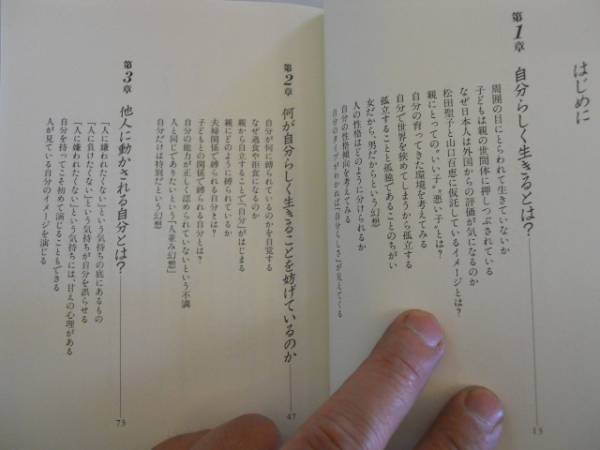 はじめに
第1章 自分らしく生きるとは? 13
周囲の目にとらわれて生きていないか
子どもは親の世間体に押しつぶされている
なぜ日本人は外国からの評価が気になるのか
松田聖子と山口百恵に仮託しているイメージとは?
親にとっての“いい子”“悪い子”とは?
自分の育ってきた環境を考えてみる
自分で世界を狭めてしまうから孤立する
孤立することと孤独であることのちがい
女だから、男だからという幻想
人の性格はどのように分けられるか
自分の性格傾向を考えてみる
自分のタイプがわかれば「自分らしさ」が見えてくる
第2章 何が自分らしく生きることを妨げているのか 47
自分が何に縛られているのかを自覚する
なぜ過食や拒食になるのか
親から自立することで「自分」がはじまる
親にどのように縛られているか
夫婦関係で縛られる自分とは?
子どもとの関係で縛られる自分とは?
自分の能力が正しく評価されていないという不満
人と同じでありたいという「人並み幻想」
自分だけは特別だという幻想
第3章 他人に動かされる自分とは? 73
「人に嫌われたくない」という気持ちの底にあるもの
「人に負けたくない」という気持ちが自分を誤らせる
「人に嫌われたくない」という気持ちには、甘えの心理がある
自分を持ってこそ初めて演じることもできる
人が見ている自分のイメージを演じる